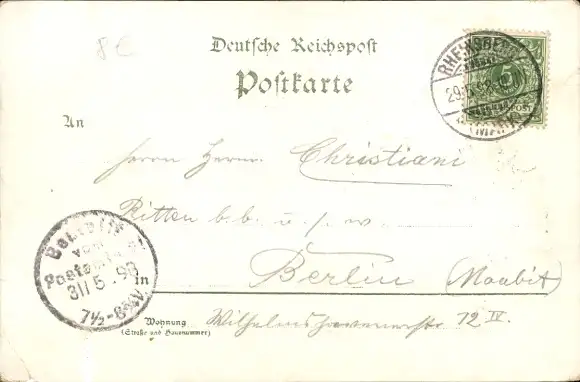 8€
Deutsche Reichspost
Postkarte
RHEINSBERG
29.5.98
(MARK)
POST
An
Herrn Herm. Christiani
Ritten b.b. u. s. w.
Bestellt
vom
Postamte
31/5.98
7½-8¼V.
in
Berlin (Moabit)
Wohnung
(Straße und Hausnummer)
Wilhelmshavenerstr. 72 IV.